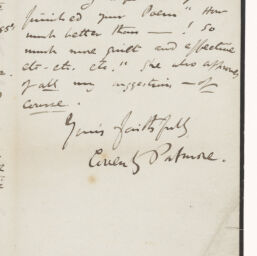 finished your Poem "How
much better than — ! So
much more quiet and effective
etc. etc. etc." She also approves
of all my suggestions — of
course.
Yours faithfully
Coventry Patmore.